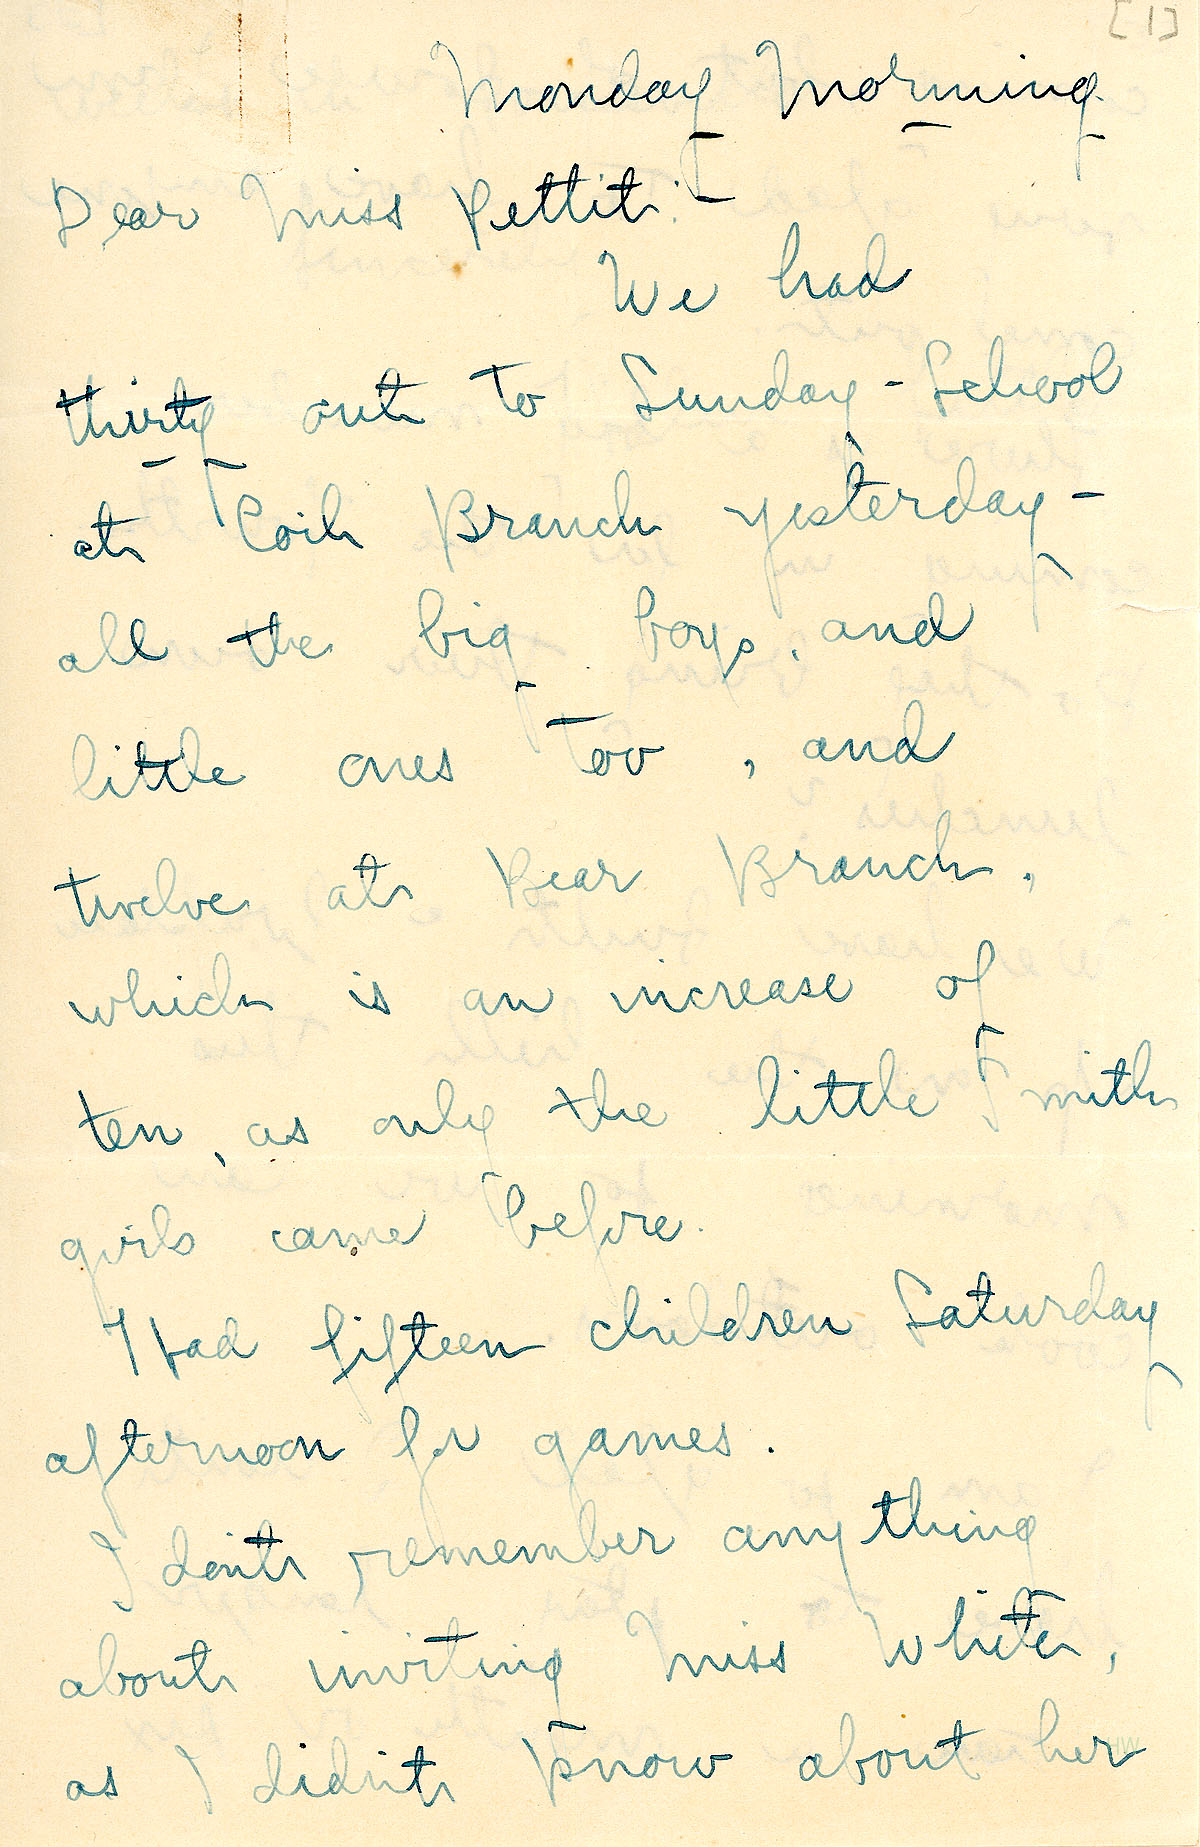 [1]
Monday Morning
Dear Miss Pettit:
We had
thirty out to Sunday-School
at Coil Branch yesterday -
all the big boys, and
little ones too, and
twelve at Bear Branch,
which is an increase of
ten, as only the little Smith
girls came before.
I had fifteen children Saturday
afternoon for games.
I don't remember anything
about inviting Miss White,
as I didn't know about her